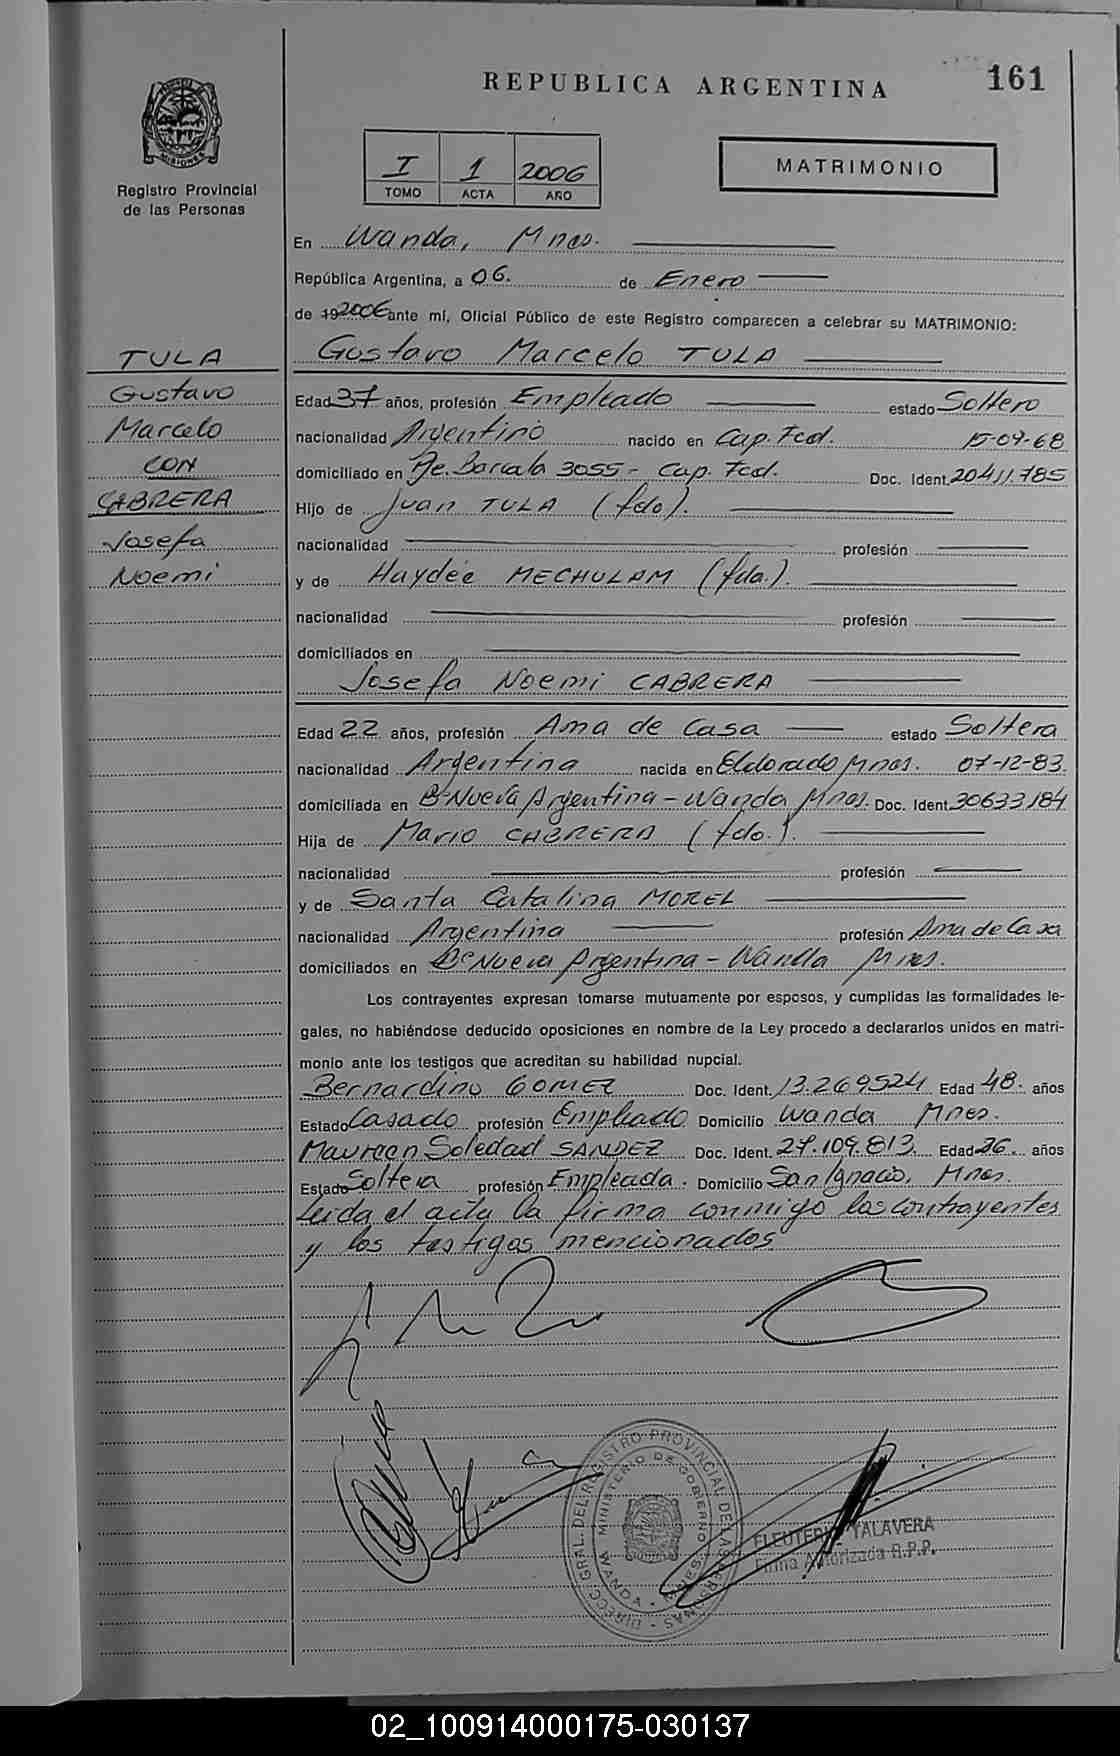 REPUBLICA ARGENTINA
161
MISIONES
Registro Provincial
de las Personas
I 1 2006
TOMO ACTA AÑO
MATRIMONIO
En Wanda, Mnes.
República Argentina, a 06. de Enero
de 19 2006 ante mí, Oficial Público de este Registro comparecen a celebrar su MATRIMONIO:
Gustavo Marcelo TULA
TULA
Gustavo
Marcelo
CON
CABRERA
Josefa
Noemi
Edad 37 años, profesión Empleado estado Soltero
nacionalidad Argentino nacido en Cap. Fed. 15-09-68
domiciliado en 3055 - Cap. Fed. Doc. Ident. 20.411.785
Hijo de Juan TULA (fdo).
nacionalidad profesión
y de Haydée MECHULAM (fda.).
nacionalidad profesión
domiciliados en
Josefa Noemi CABRERA
Edad 22 años, profesión Ama de Casa estado Soltera
nacionalidad Argentina nacida en Eldorado Mnes. 07-12-83.
domiciliada en Bº Nueva Argentina - Wanda Mnes. Doc. Ident. 30633184
Hija de Mario CABRERA (fdo.).
nacionalidad profesión
y de Santa Catalina MOREL
nacionalidad Argentina profesión Ama de Casa
domiciliados en Bº Nueva Argentina - Wanda Mnes.
Los contrayentes expresan tomarse mutuamente por esposos, y cumplidas las formalidades le-
gales, no habiéndose deducido oposiciones en nombre de la Ley procedo a declararlos unidos en matri-
monio ante los testigos que acreditan su habilidad nupcial.
Bernardino GOMEZ Doc. Ident. 13.269524 Edad 48. años
Estado Casado profesión Empleado Domicilio Wanda Mnes.
Maureen Soledad SANDEZ Doc. Ident. 27.109.813. Edad 26. años
Estado Soltera profesión Empleada. Domicilio San Ignacio, Mnes.
Leida el acta la firma conmigo los contrayentes
y los testigos mencionados
DIRECC. GRAL. DEL REGISTRO PROVINCIAL DE LAS PERSONAS
MINISTERIO DE GOBIERNO
WANDA
TALAVERA
Firma Autorizada R.P.P.
02_100914000175-030137